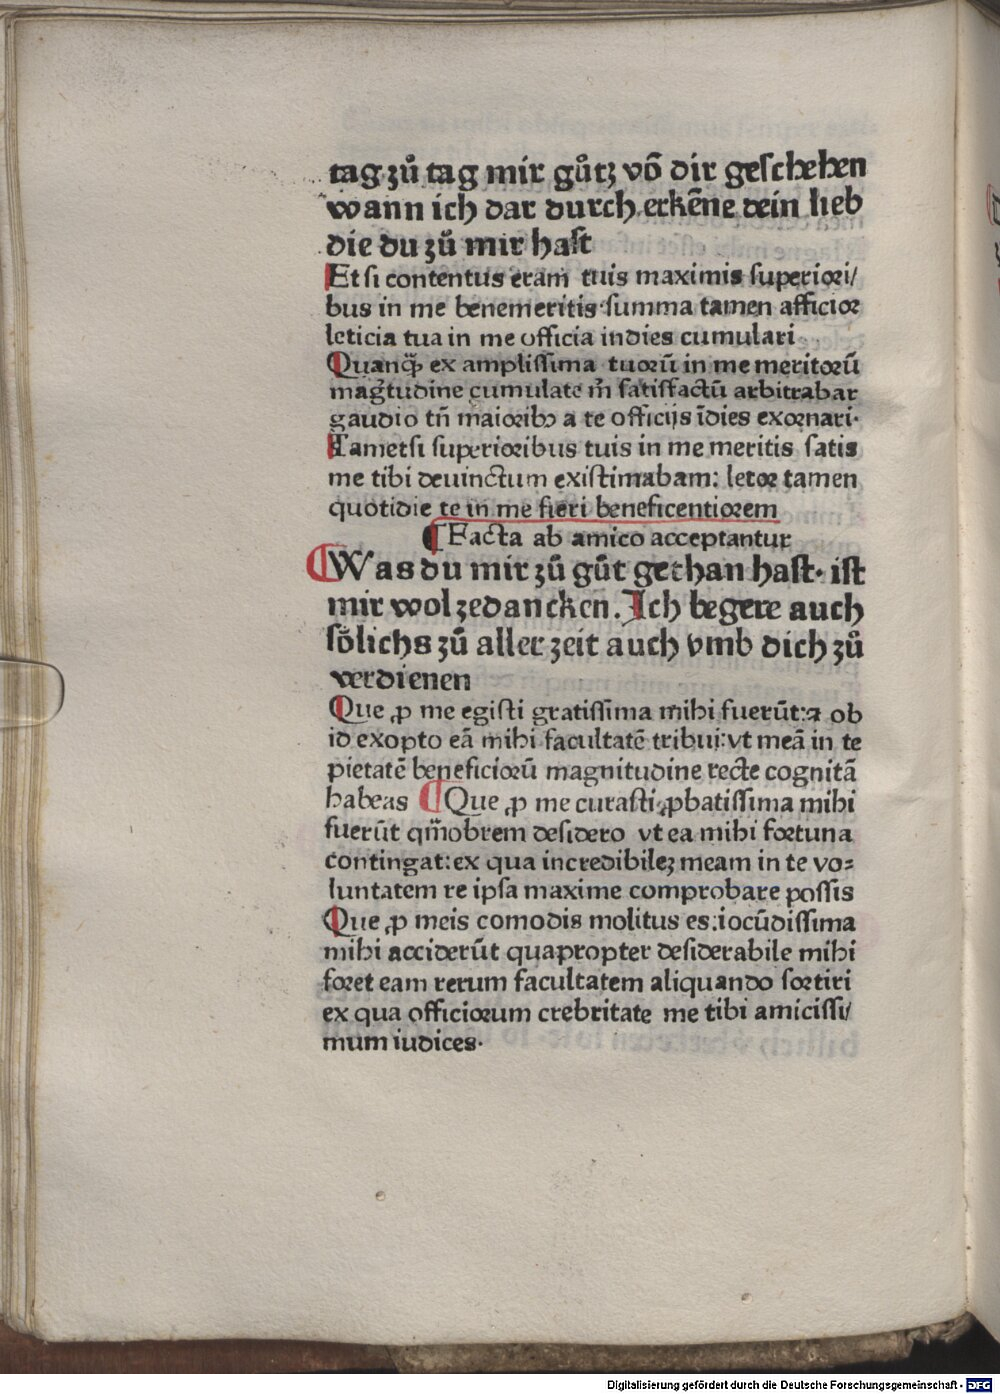 tag zů tag mir gůtz võ dir geschehen
wann ich dar durch erkẽne dein lieb
die du zů mir hast
Et si contentus eram tuis maximis superiori/
bus in me benemeritis summa tamen afficior
leticia tua in me officia indies cumulari
Quanq̃ ex amplissima tuorũ in me meritorũ
mag̃tudine cumulate m̃ satisfactũ arbitrabar
gaudio tñ maioribꝰ a te officijs ĩdies exornari·
Tametsi superioribus tuis in me meritis satis
me tibi deuinctum existimabam: letor tamen
quotidie te in me fieri beneficentiorem
¶ Facta ab amico acceptantur
¶ Was du mir zů gůt gethan hast· ist
mir wol zedancken. Ich begere auch
sölichs zů aller zeit auch vmb dich zů
verdienen
Que ꝓ me egisti gratissima mihi fuerũt: ⁊ ob
id exopto eã mihi facultatẽ tribui: vt meã in te
pietatẽ beneficiorũ magnitudine recte cognitã
habeas ¶ Que ꝓ me curasti ꝓbatissima mihi
fuerũt qm̃obrem desidero vt ea mihi fortuna
contingat: ex qua incredibilez meam in te vo=
luntatem re ipsa maxime comprobare possis
Que ꝓ meis comodis molitus es: iocũdissima
mihi acciderũt quapropter desiderabile mihi
foret eam rerum facultatem aliquando sortiri
ex qua officiorum crebritate me tibi amicissi/
mum iudices·
Digitalisierung gefördert durch die Deutsche Forschungsgemeinschaft - DFG